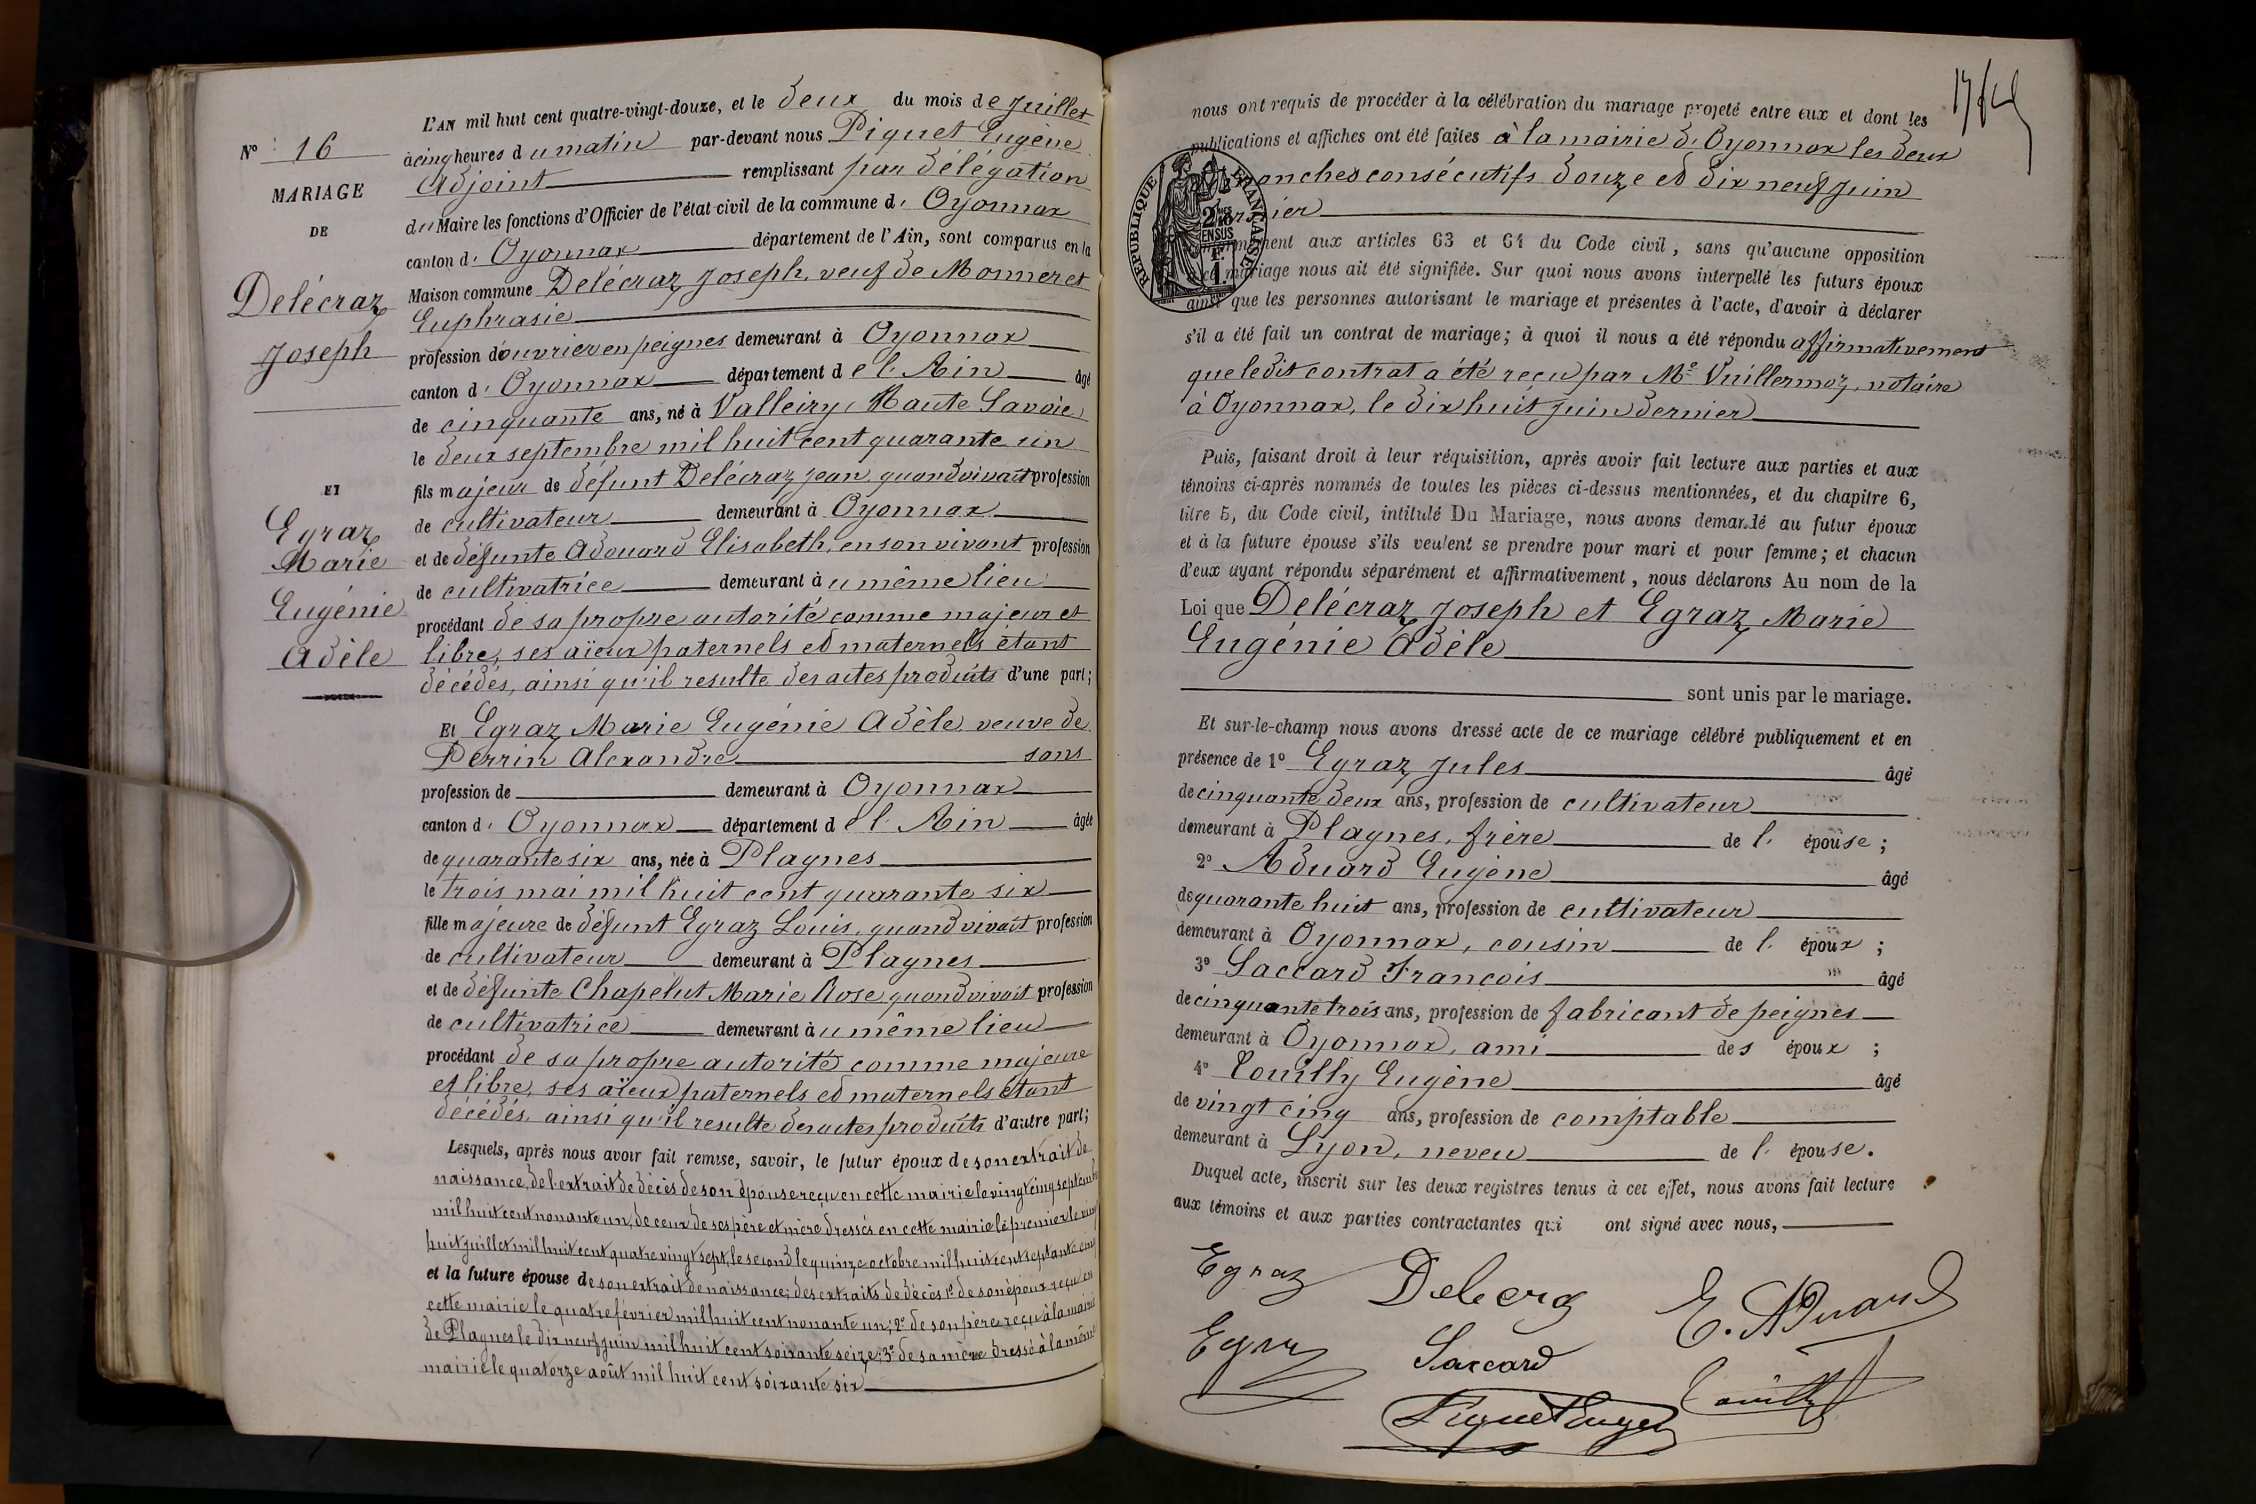 L'AN mil huit cent quatre-vingt-douze, et le deux du mois de Juillet
à cinq heures du matin par-devant nous Piquet Eugène
Adjoint remplissant par délégation
du Maire les fonctions d'Officier de l'état civil de la commune d' Oyonnax
canton d' Oyonnax département de l'Ain, sont comparus en la
Maison commune Delécraz Joseph, veuf de Monneret
Euphrasie
profession d'ouvrier en peignes demeurant à Oyonnax
canton d' Oyonnax département de l'Ain âgé
de cinquante ans, né à Valleiry, Haute Savoie
le deux septembre mil huit cent quarante un
fils majeur de défunt Delécraz Jean, quand vivait profession
de cultivateur demeurant à Oyonnax
et de défunte Adouard Elisabeth, en son vivant profession
de cultivatrice demeurant au même lieu
procédant de sa propre autorité comme majeur et
libre, ses aïeux paternels et maternels étant
décédés, ainsi qu'il resulte des actes produits d'une part;
Et Egraz Marie Eugénie Adèle veuve de
Perrin Alexandre sans
profession de demeurant à Oyonnax
canton d' Oyonnax département de l'Ain âgée
de quarante six ans, née à Plagnes
le trois mai mil huit cent quarante six
fille majeure de défunt Egraz Louis, quand vivait profession
de cultivateur demeurant à Plagnes
et de défunte Chapelut Marie Rose quand vivait profession
de cultivatrice demeurant au même lieu
procédant de sa propre autorité comme majeure
et libre, ses aïeux paternels et maternels étant
décédés, ainsi qu'il resulte des actes produits d'autre part;
Lesquels, après nous avoir fait remise, savoir, le futur époux de son extrait de
naissance, de l'extrait de décès de son épouse reçu en cette mairie le vingt cinq septembre
mil huit cent nonante un, de ceux de ses père et mère dressés en cette mairie le premier le vingt
huit juillet mil huit cent quatre vingt sept, le second le quinze octobre mil huit cent septante cinq
et la future épouse de son extrait de naissance; des extraits de décès 1º de son époux reçu en
cette mairie le quatre février mil huit cent nonante un; 2º de son père reçu à la mairie
de Plagnes le dix neuf juin mil huit cent soixante seize; 3º de sa mère dressé à la même
mairie le quatorze août mil huit cent soixante six
Nº 16
MARIAGE
DE
Delécraz
Joseph
ET
Egraz
Marie
Eugénie
Adèle
nous ont requis de procéder à la célébration du mariage projeté entre eux et dont les
publications et affiches ont été faites à la mairie d'Oyonnax les deux
dimanches consécutifs douze et dix neuf juin
dernier
conformément aux articles 63 et 64 du Code civil, sans qu'aucune opposition
à ce mariage nous ait été signifiée. Sur quoi nous avons interpellé les futurs époux
ainsi que les personnes autorisant le mariage et présentes à l'acte, d'avoir à déclarer
s'il a été fait un contrat de mariage; à quoi il nous a été répondu affirmativement
que le dit contrat a été reçu par Me Vuillermoz, notaire
à Oyonnax, le dix huit juin dernier
RÉPUBLIQUE FRANÇAISE
2/10 EN SUS
1 F.
Puis, faisant droit à leur réquisition, après avoir fait lecture aux parties et aux
témoins ci-après nommés de toutes les pièces ci-dessus mentionnées, et du chapitre 6,
titre 5, du Code civil, intitulé Du Mariage, nous avons demandé au futur époux
et à la future épouse s'ils veulent se prendre pour mari et pour femme; et chacun
d'eux ayant répondu séparément et affirmativement, nous déclarons Au nom de la
Loi que Delécraz Joseph et Egraz Marie
Eugénie Adèle
sont unis par le mariage.
Et sur-le-champ nous avons dressé acte de ce mariage célébré publiquement et en
présence de 1º Egraz Jules âgé
de cinquante deux ans, profession de cultivateur
demeurant à Plagnes, frère de l' épouse;
2º Aduard Eugène âgé
de quarante huit ans, profession de cultivateur
demeurant à Oyonnax, cousin de l' époux;
3º Saccard François âgé
de cinquante trois ans, profession de fabricant de peignes
demeurant à Oyonnax, ami des époux;
4º Touilly Eugène âgé
de vingt cinq ans, profession de comptable
demeurant à Lyon, neveu de l' épouse.
Duquel acte, inscrit sur les deux registres tenus à cet effet, nous avons fait lecture
aux témoins et aux parties contractantes qui ont signé avec nous,
Egraz Delecraz E. Aduard
Egraz Saccard Touilly
Piquet Eugène